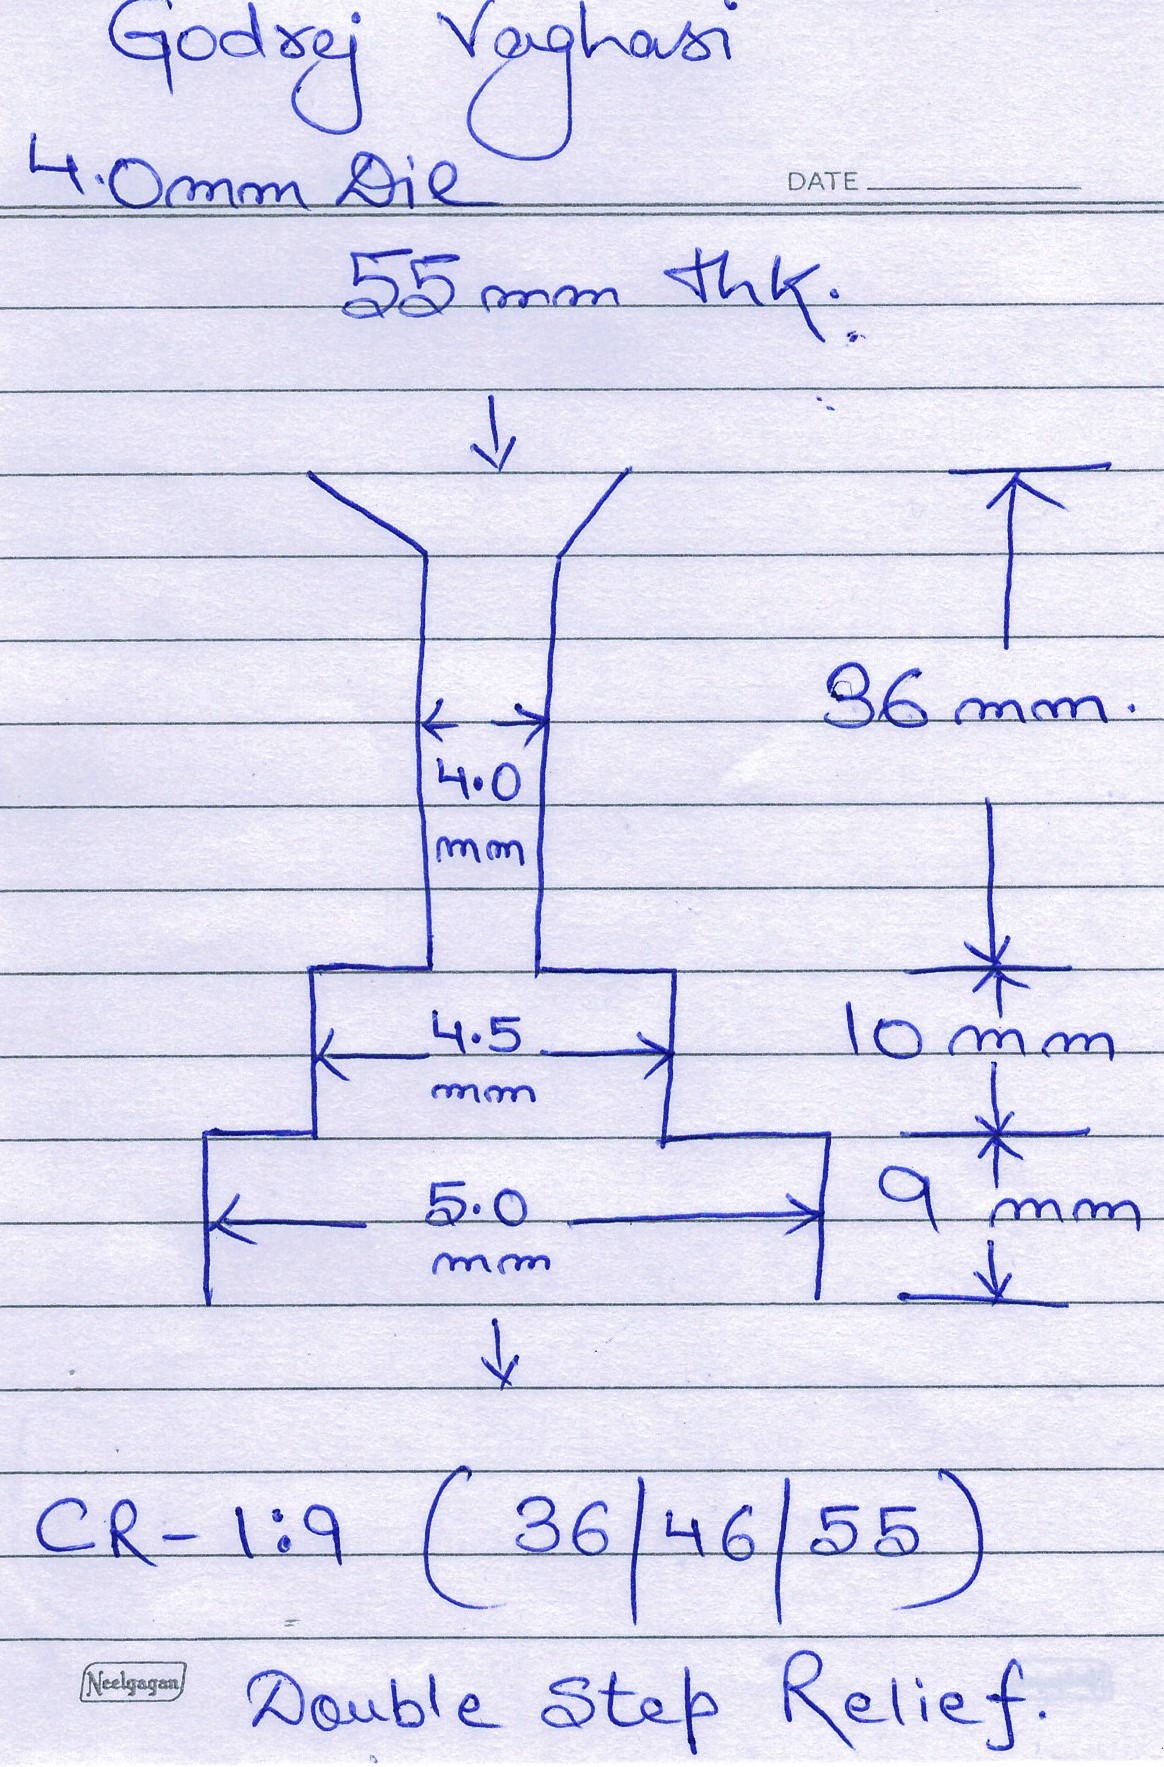 Godrej Vaghasi
4.0mm Die
DATE
55 mm thk.
36 mm.
4.0
mm
10 mm
4.5
mm
9 mm
5.0
mm
CR- 1:9 (36|46|55)
Neelgagan
Double Step Relief.